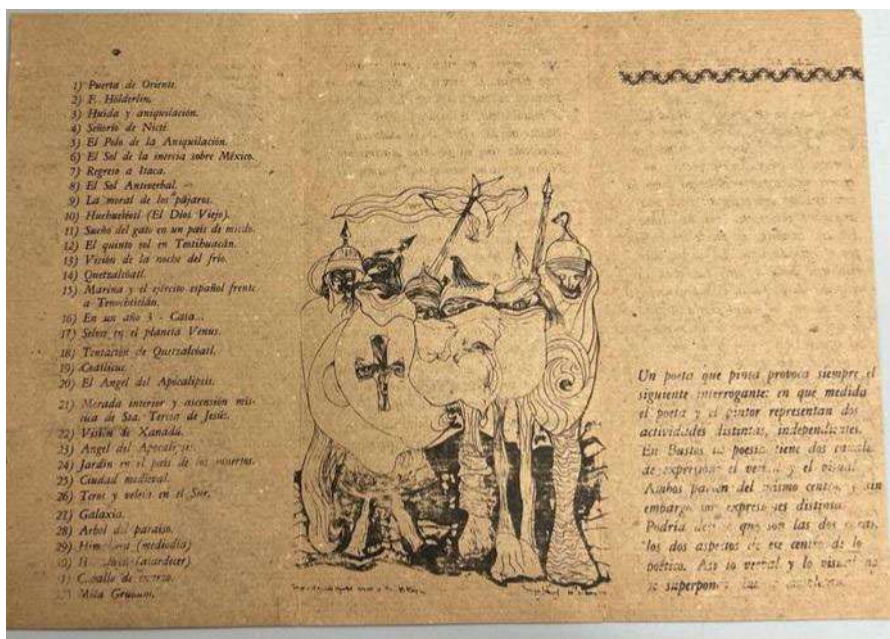 1) Puerta de Oriente.
2) F. Hölderlin.
3) Huida y aniquilación.
4) Señorío de Nicté.
5) El Polo de la Aniquilación.
6) El Sol de la inercia sobre México.
7) Regreso a Itaca.
8) El Sol Antiverbal.
9) La moral de los pájaros.
10) Huehuetéotl (El Dios Viejo).
11) Sueño del gato en un país de miedo.
12) El quinto sol en Teotihuacán.
13) Visión de la noche del frío.
14) Quetzalcóatl.
15) Marina y el ejército español frente
a Tenochtitlán.
16) En un año 3 - Casa...
17) Seres en el planeta Venus.
18) Tentación de Quetzalcóatl.
19) Coatlicue.
20) El Angel del Apocalipsis.
21) Morada interior y ascensión mís-
tica de Sta. Teresa de Jesús.
22) Visión de Xanadú.
23) Angel del Apocalipsis.
24) Jardín en el país de los muertos.
25) Ciudad medieval.
26) Toros y veleta en el Sur.
27) Galaxia.
28) Arbol del paraíso.
29) (mediodía)
30) (atardecer)
31) Caballo de
32)
Un poeta que pinta provoca siempre el
siguiente interrogante: en qué medida
el poeta y el pintor representan dos
actividades distintas, independientes.
En Bustos su poesía tiene dos canales
de expresión: el verbal y el visual.
Ambos parten del mismo centro, y sin
embargo son expresiones distintas.
Podría decirse que son las dos caras,
los dos aspectos de ese centro de lo
poético. Así lo verbal y lo visual no
se superponen,